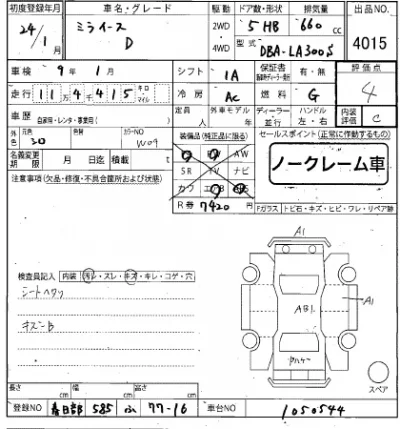 初度登録年月 車名・グレード 駆動 ドア数・形状 排気量 出品NO
24/1月 ミライース D 2WD・4WD 5 HB 660cc 4015
型式 DBA-LA300S
車検 9年1月 シフト IA 保証書 有・無 評価点
走行 114415 キロ マイル 冷房 AC 燃料 G 4
車歴 自家用・レンタ・事業用( ) 定員 人 外車モデル 年 ディーラー 並行 ハンドル 左・右 内装評価 C
外色 元色 シロ カラーNO W09 装備品(純正品に限る) セールスポイント(正常に作動するもの)
名義変更期限 月 日迄 積載 t AW
SR TV ナビ ノークレーム車
注意事項(欠品・修復・不具合箇所および状態) カワ エアB
R券 7420円 Fガラス トビ石・キズ・ヒビ・ワレ・リペア跡
A1
検査員記入 内装 汚レ・スレ・キズ・キレ・コゲ・穴
シートヘタリ
A1
AB1
キズ−B
スペア
長さ cm 幅 cm 高さ cm
登録NO 春日部 585 ふ 77-16 車台NO 1050544